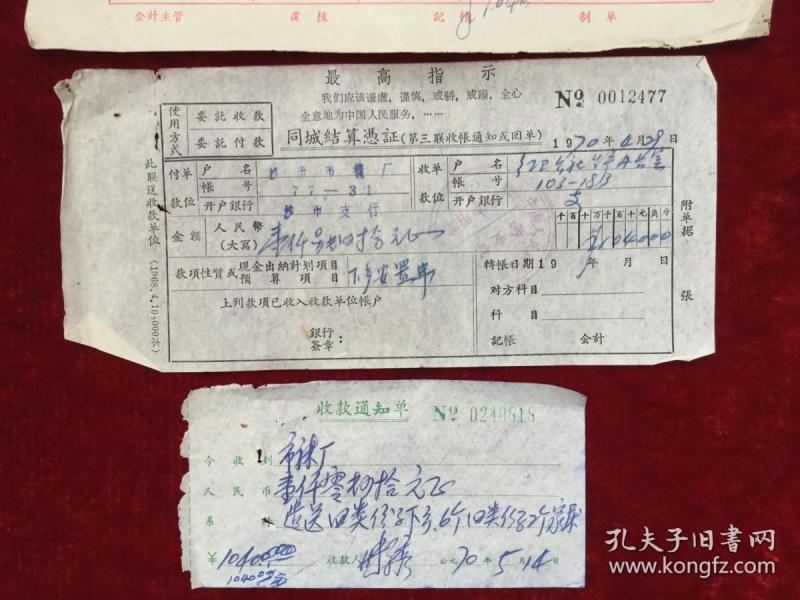 会計主管 覆核 記帳 制单
最高指示
我们应該謙虛，謹愼，戒驕，戒躁，全心
全意地为中国人民服务，……
№ 0012477
使用方式
委託收款
委託付款
同城結算憑証(第三联收帳通知或回单)
1970年4月29日
此联送收款单位 (1968.4.10,000本)
付款单位
户名 厂
帳号 77-31
开户銀行 沙市支行
收款单位
户名
帳号 103-183
开户銀行
金額 人民幣(大寫) 壹仟另肆拾元正
千百十万千百十元角分
104000
附单据 張
款項性質或現金出納計划項目預算項目 下乡安置费
轉帳日期19 年 月 日
上列款項已收入收款单位帳户
对方科目
科目
銀行签章：
記帳 会計
收款通知单 № 0240818
今收到 市床厂
人民币 壹仟零肆拾元正
系
¥1040.00
1040.00元
收款人
公元70年5月14日
孔夫子旧书网
www.kongfz.com